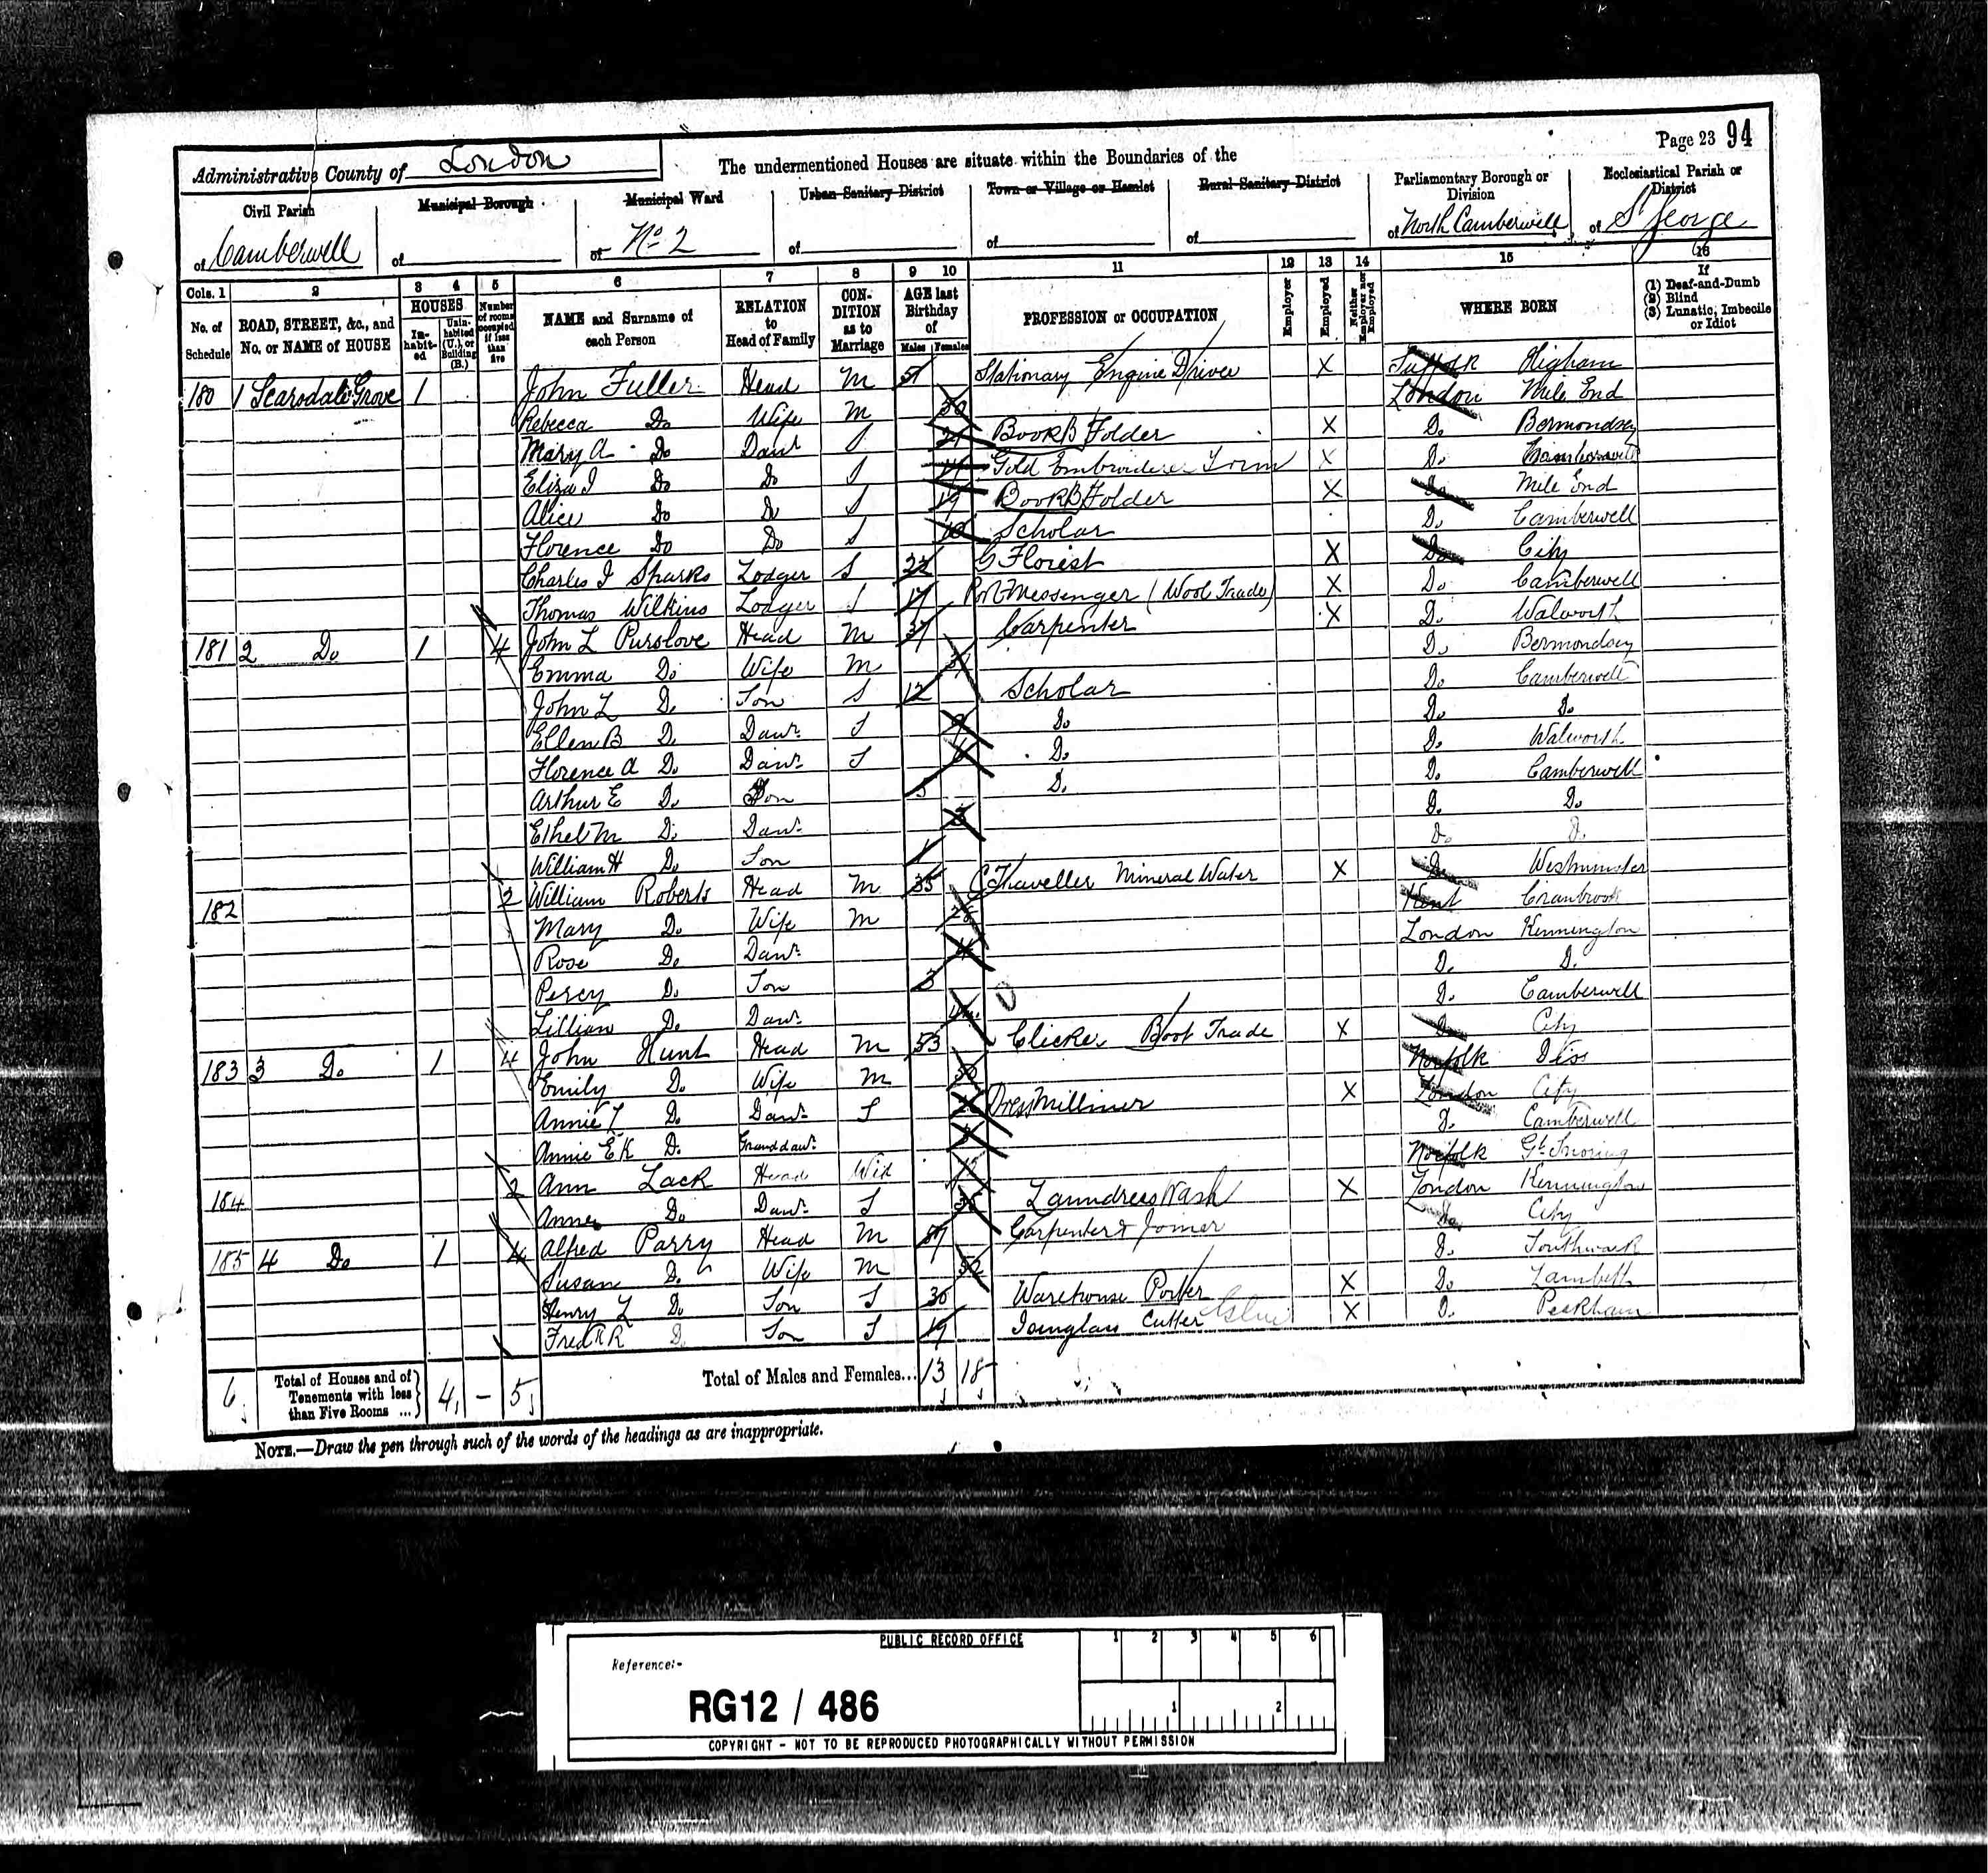 Page 23 94
Administrative County of London
The undermentioned Houses are situate within the Boundaries of the
Civil Parish
of Camberwell
Municipal Borough
of
Municipal Ward
of No 2
Urban Sanitary District
of
Town or Village or Hamlet
of
Rural Sanitary District
of
Parliamentary Borough or Division
of North Camberwell
Ecclesiastical Parish or District
of St George
Cols. 1 2 3 4 5 6 7 8 9 10 11 12 13 14 15 16
No. of Schedule
ROAD, STREET, &c., and No. or NAME of HOUSE
HOUSES
In-habit-ed
Unin-habited (U.), or Building (B.)
Number of rooms occupied if less than five
NAME and Surname of each Person
RELATION to Head of Family
CON-DITION as to Marriage
AGE last Birthday of
Males Females
PROFESSION or OCCUPATION
Employer
Employed
Neither Employer nor Employed
WHERE BORN
If
(1) Deaf-and-Dumb
(2) Blind
(3) Lunatic, Imbecile or Idiot
180 1 Scarsdale Grove 1 John Fuller Head M 51 Stationary Engine Driver X Suffolk Higham
Rebecca Do Wife M 50 London Mile End
Mary A Do Daur S 21 Book B Folder X Do Bermondsey
Eliza J Do Do S Gold Embroiderer X Do Camberwell
Alice Do Do S 17 Book B Folder X Do Mile End
Florence Do Do S 10 Scholar Do Camberwell
Charles J Sparks Lodger S 22 Florist X Do City
Thomas Wilkins Lodger S 17 Messenger (Wool Trade) X Do Camberwell
181 2 Do 1 4 John L Purslove Head M 37 Carpenter X Do Walworth
Emma Do Wife M Do Bermondsey
John L Do Son S 12 Scholar Do Camberwell
Ellen B Do Daur S 9 Do Do Do
Florence A Do Daur S Do Do Walworth
Arthur E Do Son 5 Do Do Camberwell
Ethel M Do Daur 3 Do Do
William H Do Son 1 Do Do
182 2 William Roberts Head M 35 Traveller Mineral Water X Do Westminster
Mary Do Wife M 28 Kent Cranbrook
Rose Do Daur 4 London Kennington
Percy Do Son 3 Do Do
Lillian Do Daur Do Camberwell
183 3 Do 1 4 John Hunt Head M 53 Clicker Boot Trade X Do City
Emily Do Wife M 50 Norfolk Diss
Annie Do Daur S Dress Milliner X London City
Annie E K Do Granddaur 3 Do Camberwell
184 2 Ann Lack Head Wid Norfolk Gt Snoring
Anne Do Daur S Laundress Wash X London Kennington
185 4 Do 1 4 Alfred Parry Head M 57 Carpenter & Joiner Do City
Susan Do Wife M 52 Do Southwark
Henry L Do Son S 30 Warehouse Porter X Do Lambeth
Fredk R Do Son S 17 Isinglass Cutter Glue X Do Peckham
6 Total of Houses and of Tenements with less than Five Rooms ... 4 – 5 Total of Males and Females... 13 18
NOTE.—Draw the pen through such of the words of the headings as are inappropriate.
PUBLIC RECORD OFFICE
1 2 3 4 5 6
Reference:-
RG12 / 486
1 2
COPYRIGHT - NOT TO BE REPRODUCED PHOTOGRAPHICALLY WITHOUT PERMISSION